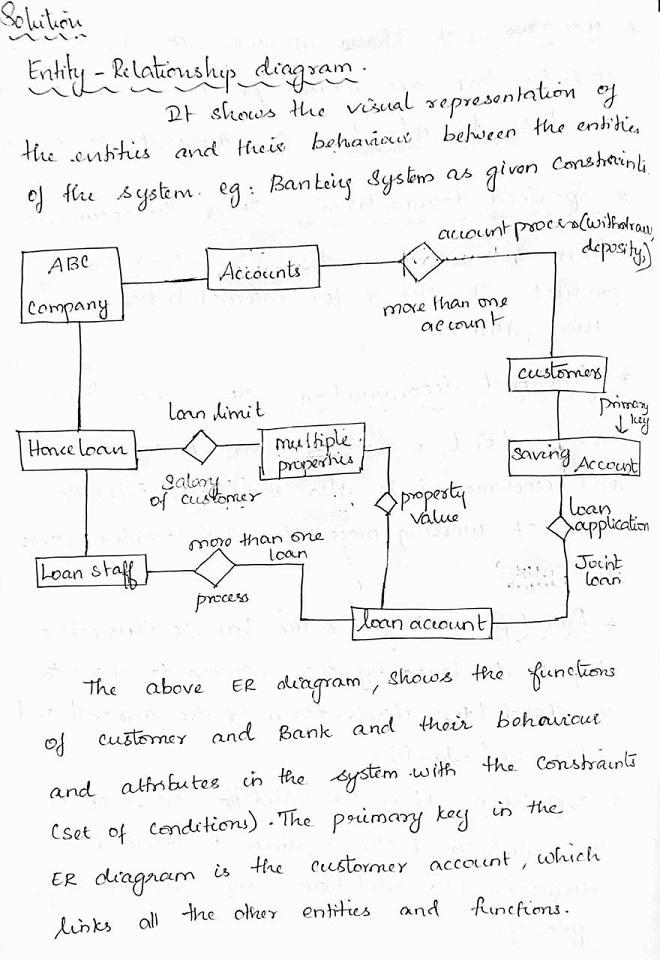 Solution
Entity-Relationship diagram.
It shows the visual representation of
the entities and their behaviour between the entities
of the system. eg: Banking System as given constraints
account process(withdraw,
deposity,)
ABC
Company
Accounts
more than one
account
customers
primary
key
loan limit
Home loan
multiple
properties
Saving Account
Salary
of customer
property
value
loan
application
more than one
loan
Loan staff
process
Joint
loan
loan account
The above ER diagram, shows the functions
of customer and Bank and their behaviour
and attributes in the system with the constraints
(set of conditions). The primary key in the
ER diagram is the customer account, which
links all the other entities and functions.